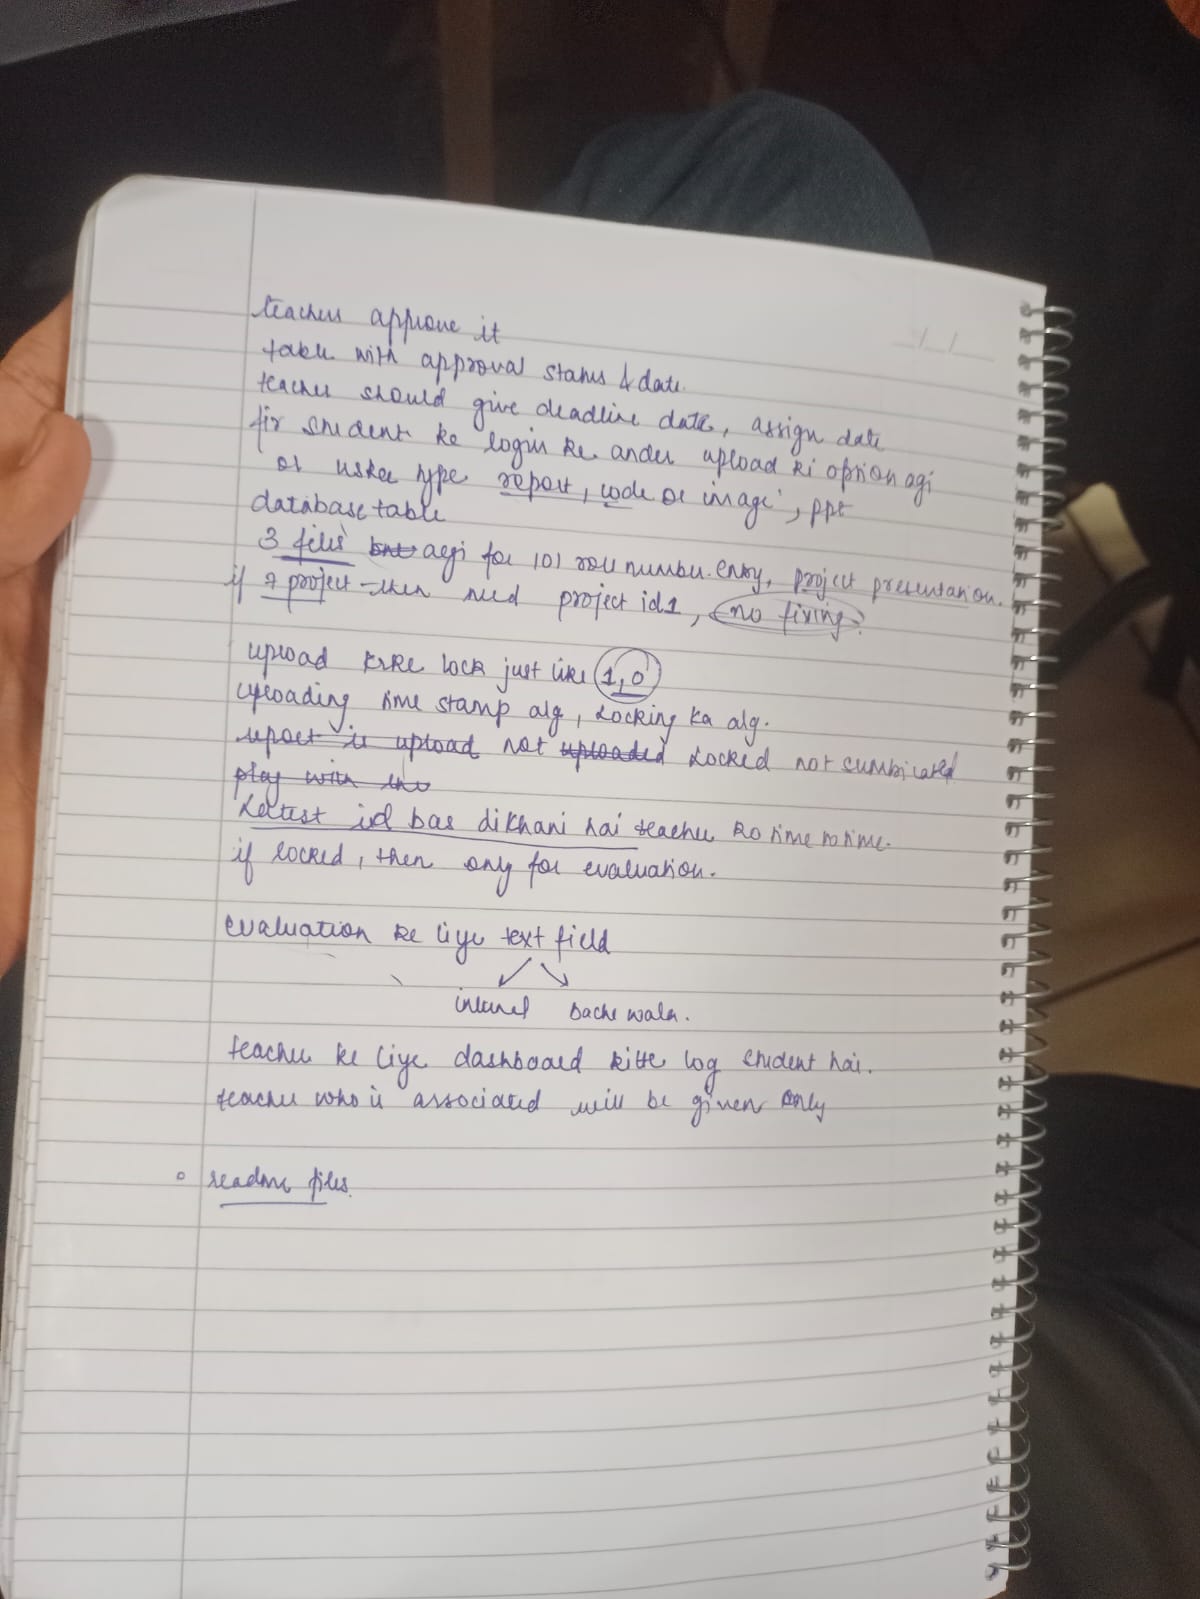 teacher approve it
table with approval status & date.
teacher should give deadline date, assign date
fir student ke login ke ander upload ki option agi
or uskee type report, code or image, ppt
database table
3 files aegi for 101 roll number entry, project presentation.
if 7 project then need project id1, no fixing
upload krke lock just like 1,0
uploading time stamp alg, Locking ka alg.
report is upload not uploaded Locked not
play with the
Latest id bas dikhani hai teacher ko time to time.
if locked, then only for evaluation.
evaluation ke liye text field
bache wala.
teacher ke liye dashboard kitte log student hai.
teacher who is associated will be given only
readme files.